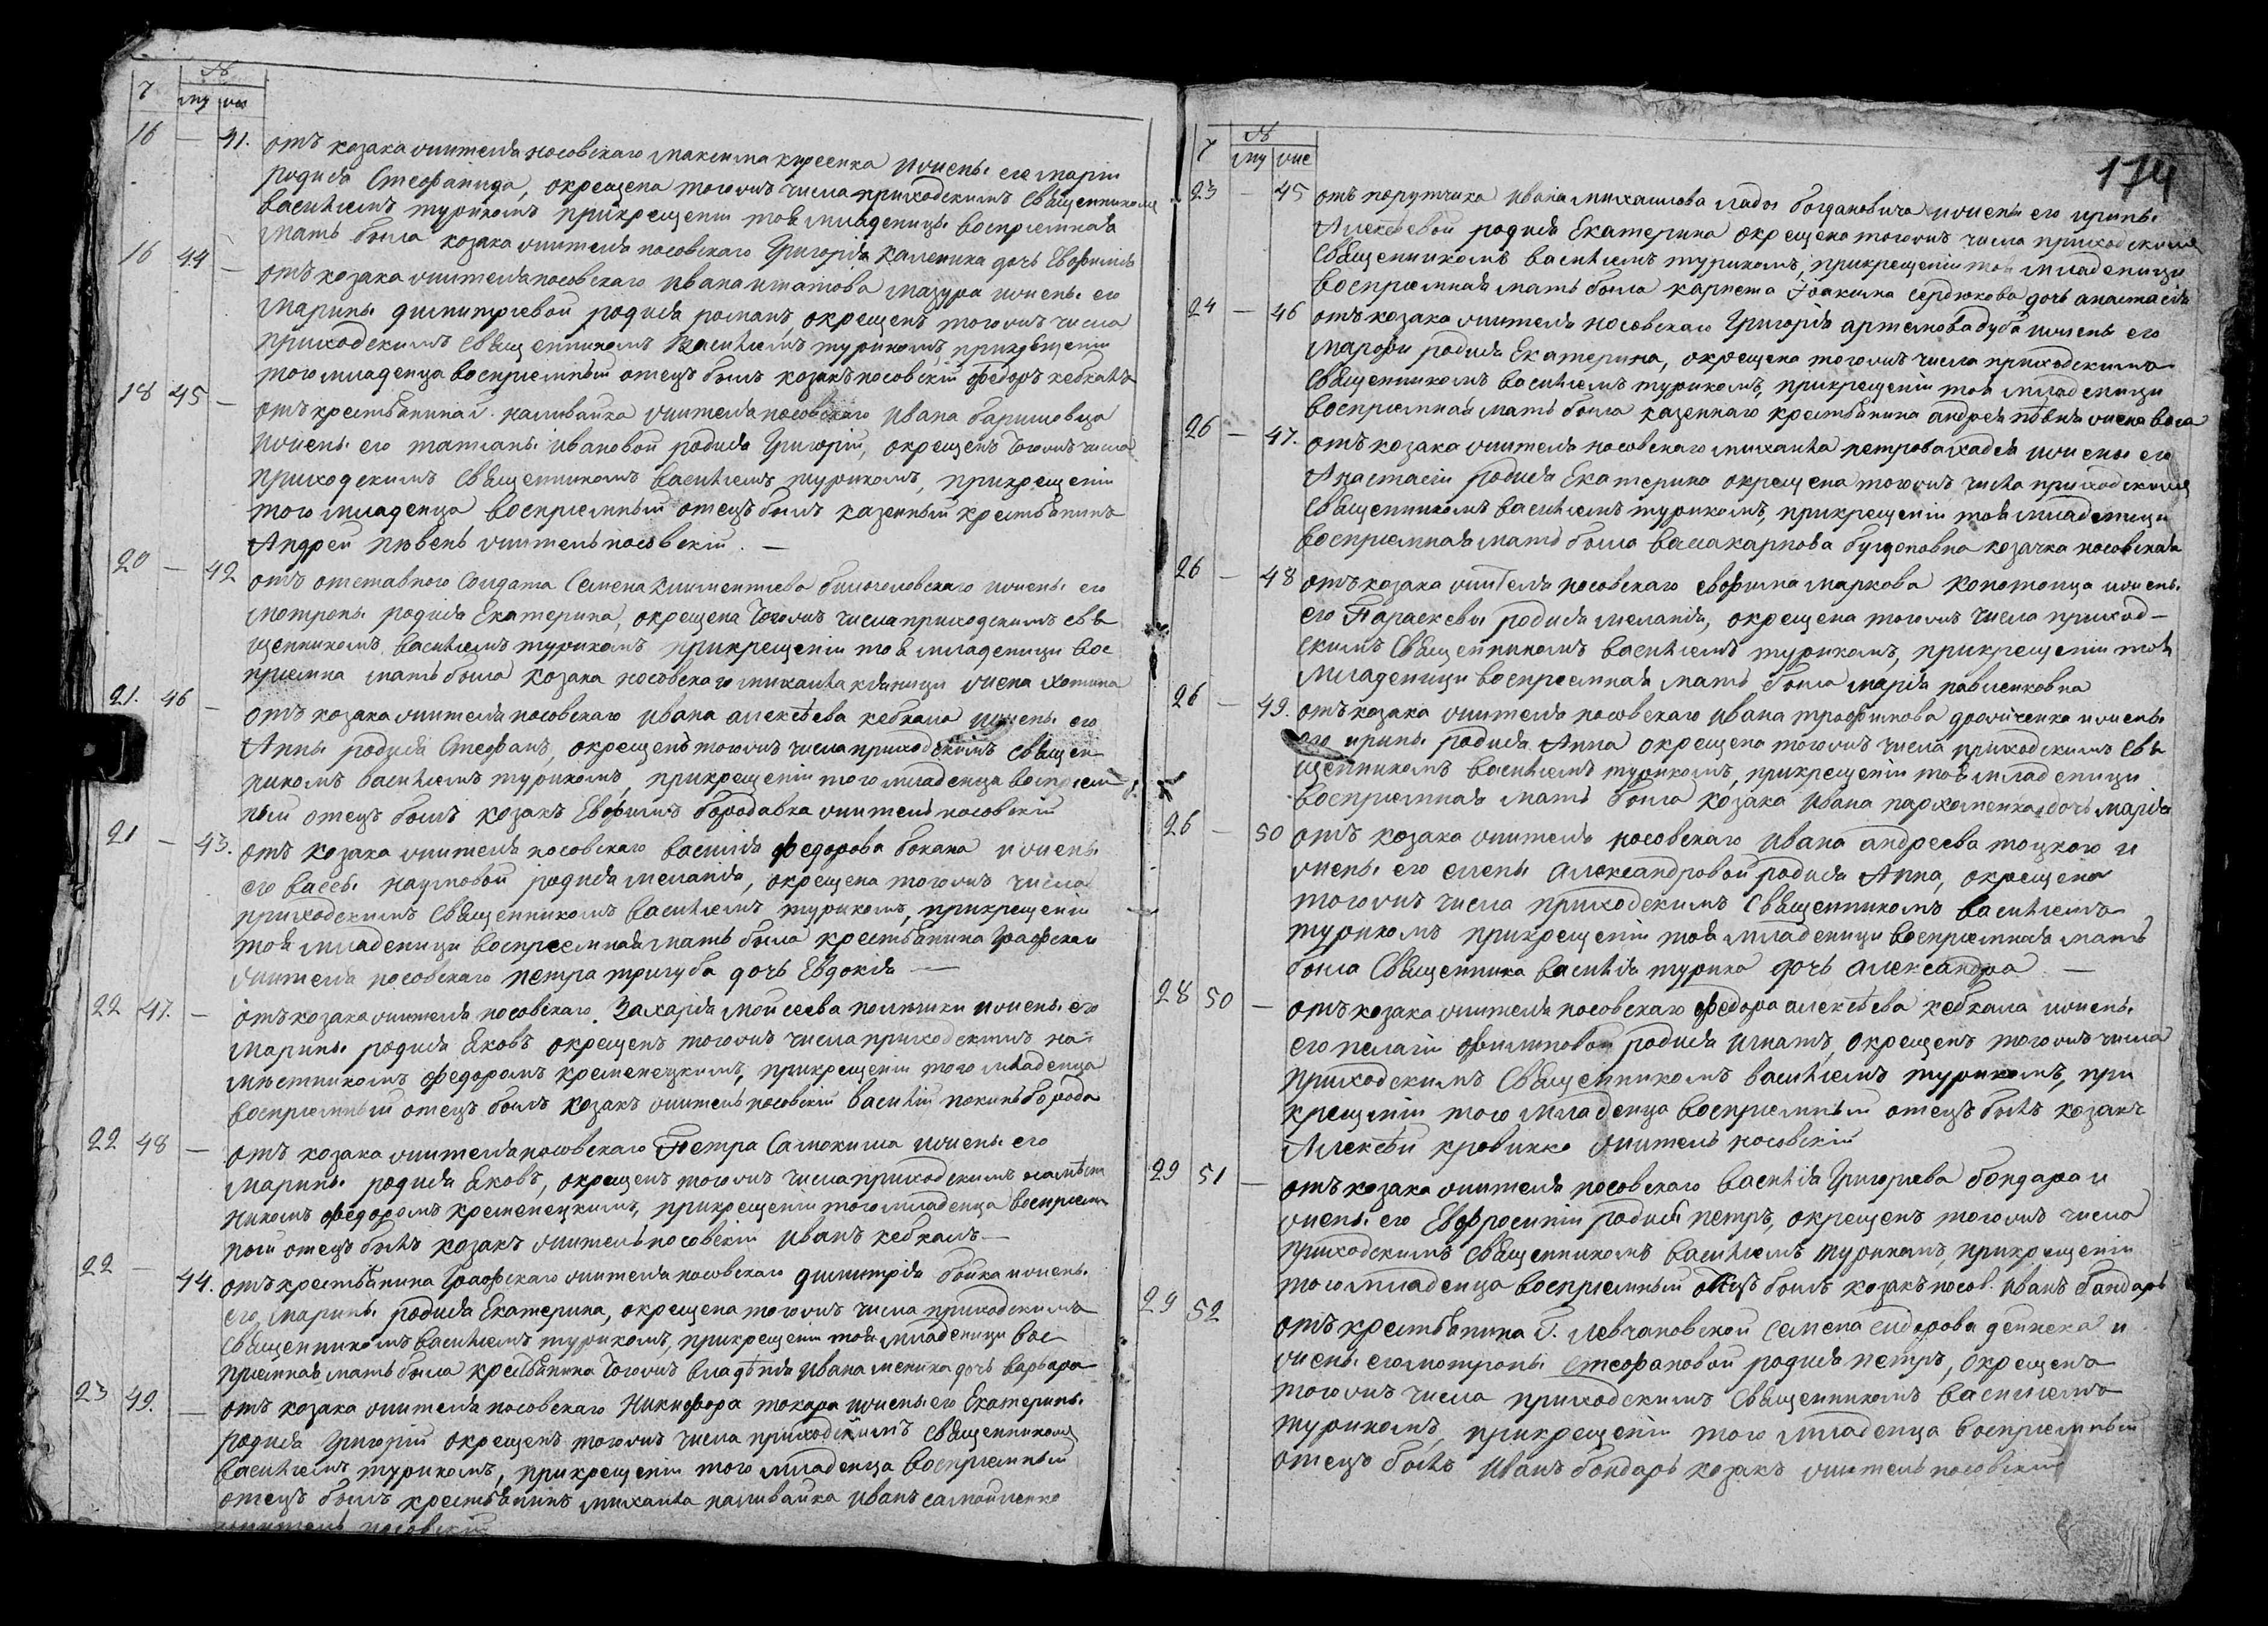 №
ч му же
16 — 41. отъ козака жителя носовскаго максима киреенка ижены его маріи
родися Стефанида, окрещена тогожъ числа приходскимъ священникомъ
василіемъ туринкомъ прикрещеніи тоя младеницы воспріемная
мать была козака жителя носовскаго Григорія каленика дочь Евфимія
16 44 — отъ козака жителя носовскаго ивана игнатова мазура ижены его
марины димитріевой родися романъ, окрещенъ тогожъ числа
приходскимъ священникомъ Василіемъ туринкомъ, прикрещеніи
того младенца воспріемный отецъ былъ козакъ носовскій федоръ кебкалъ
18 45 — отъ крестьянина г. наливайка жителя носовскаго ивана баришовца
ижены его татіаны ивановой родися Григорій, окрещенъ тогожъ числа
приходскимъ священникомъ василіемъ туринкомъ, прикрещеніи
того младенца воспріемный отецъ былъ казенный крестьянинъ
Андрей пѣвень житель носовскій. —
20 — 42 отъ отставного солдата Семена климентіева ижены его
мотроны родися Екатерина, окрещена тогожъ числа приходскимъ свя
щенникомъ василіемъ туринкомъ прикрещеніи тоя младеницы вос
пріемна мать была козака носовскаго михаила кляници жена
21. 46 — отъ козака жителя носовскаго ивана алексѣева кебкала ижены его
Анны родися Стефанъ, окрещенъ тогожъ числа приходскимъ священ
никомъ василіемъ туринкомъ, прикрещеніи того младенца воспріем
ный отецъ былъ козакъ Евфимъ бородавка житель носовскій
21 — 43. отъ козака жителя носовскаго василія федорова бокана ижены
его вассы наумовой родися меланія, окрещена тогожъ числа
приходскимъ священникомъ василіемъ туринкомъ, прикрещеніи
тоя младеницы воспріемная мать была крестьянина графскаго
жителя носовскаго петра тригуба дочь Евдокія —
22 47. — отъ козака жителя носовскаго Захарія моисеева ижены его
марины родися Яковъ окрещенъ тогожъ числа приходскимъ на
мѣстникомъ федоромъ кременецкимъ, прикрещеніи того младенца
воспріемный отецъ былъ козакъ житель носовскій василій покиньборода
22 48 — отъ козака жителя носовскаго Петра Самокиша ижены его
марины родися Яковъ, окрещенъ тогожъ числа приходскимъ намѣст
никомъ федоромъ кременецкимъ, прикрещеніи того младенца воспріем
ной отецъ былъ козакъ житель носовскій иванъ кебкалъ —
22 — 44. отъ крестьянина графскаго жителя носовскаго димитрія бойка ижены
его марины родися Екатерина, окрещена тогожъ числа приходскимъ
священникомъ василіемъ туринкомъ, прикрещеніи тоя младеницы вос
пріемная мать была крестьянина тогожъ владѣнія ивана меника дочь варвара
23 49. — отъ козака жителя носовскаго Никифора токара ижены его Екатерины
родися Григорій окрещенъ тогожъ числа приходскимъ священникомъ
василіемъ туринкомъ, прикрещеніи того младенца воспріемный
отецъ былъ крестьянинъ михаила наливайка иванъ самойленко
житель носовскій
174
№
ч му же
23 — 45 отъ порутчика ивана михаилова богдановича ижены его ирины
Алексѣевой родися Екатерина окрещена тогожъ числа приходскимъ
священникомъ василіемъ туринкомъ, прикрещеніи тоя младеницы
воспріемная мать была карнета іоакима сердюкова дочь анастасія
24 — 46 отъ козака жителя носовскаго Григорія артемова дуба ижены его
марфы родися Екатерина, окрещена тогожъ числа приходскимъ
священникомъ василіемъ туринкомъ, прикрещеніи тоя младеницы
воспріемная мать была казеннаго крестьянина андрея пѣвня жена васа
26 — 47. отъ козака жителя носовскаго михаила петрова ижены его
Анастасіи родися Екатерина окрещена тогожъ числа приходскимъ
священникомъ василіемъ туринкомъ, прикрещеніи тоя младеницы
воспріемная мать была васа карпова козачка носовская
26 — 48 отъ козака жителя носовскаго евфима маркова конотопца ижены
его Параскевы родися меланія, окрещена тогожъ числа приход-
скимъ священникомъ василіемъ туринкомъ, прикрещеніи тоя
младеницы воспріемная мать была марія павленковна
26 — 49. отъ козака жителя носовскаго ивана трофимова ижены
его ирины родися Анна окрещена тогожъ числа приходскимъ свя
щенникомъ василіемъ туринкомъ, прикрещеніи тоя младеницы
воспріемная мать была козака ивана пархоменка дочь марія
26 — 50 отъ козака жителя носовскаго ивана андреева тоцкого и
жены его елены Александровой родися Анна, окрещена
тогожъ числа приходскимъ священникомъ василіемъ
туринкомъ прикрещеніи тоя младеницы воспріемная мать
была священника василія турина дочь александра —
28 50 — отъ козака жителя носовскаго федора алексѣева кебкала ижены
его пелагіи филиповой родися игнатъ, окрещенъ тогожъ числа
приходскимъ священникомъ василіемъ туринкомъ, при
крещеніи того младенца воспріемный отецъ былъ козакъ
Алексѣй кровинко житель носовскій
29 51 — отъ козака жителя носовскаго василія Григорьева бондара и
жены его Евфросиніи родися петръ, окрещенъ тогожъ числа
приходскимъ священникомъ василіемъ туринкомъ, прикрещеніи
того младенца воспріемный отецъ былъ козакъ носов. иванъ бондарь
29 52 отъ крестьянина г. левчановской семена сидорова дейнека и
жены его мотроны стефановой родися петръ, окрещенъ
тогожъ числа приходскимъ священникомъ василіемъ
туринкомъ, прикрещеніи того младенца воспріемный
отецъ былъ иванъ бондарь козакъ житель носовскій